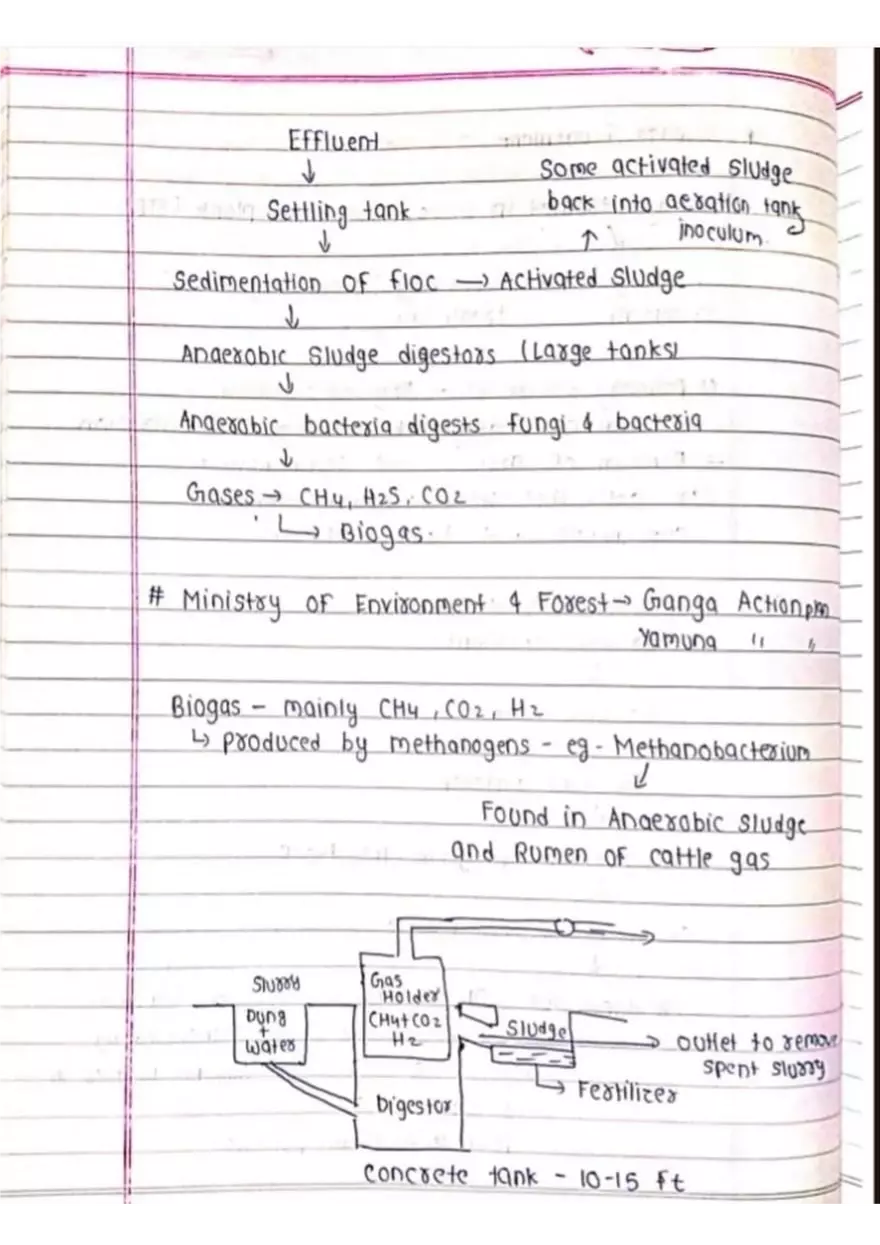 Effluent
↓
Settling tank
↓
Some activated sludge
back into aeration tank
inoculum
↑
Sedimentation of floc → Activated sludge
↓
Anaerobic sludge digestors (Large tanks)
↓
Anaerobic bacteria digests fungi & bacteria
↓
Gases → CH4, H2S, CO2
↳ Biogas.
# Ministry of Environment & Forest → Ganga Action plan
Yamuna " "
Biogas - mainly CH4, CO2, H2
↳ produced by methanogens - eg - Methanobacterium
↓
Found in Anaerobic sludge
and Rumen of cattle gas
Slurry
Dung
+
Water
Gas
Holder
CH4+CO2
H2
Digestor
Sludge
→ outlet to remove
spent slurry
→ Fertilizer
Concrete tank - 10-15 ft